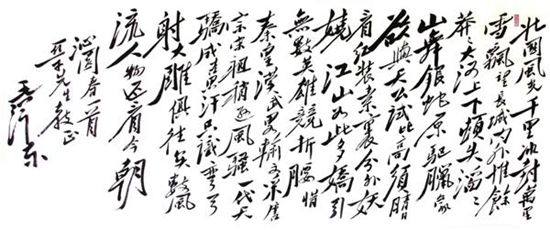 北國風光千里冰封萬里
雪飄望長城内外惟餘
莽莽大河上下頓失滔滔
山舞銀蛇原馳臘象
欲與天公試比高須晴
日看紅裝素裹分外妖
嬈江山如此多嬌引
無數英雄競折腰惜
秦皇漢武略輸文采唐
宗宋祖稍遜風騷一代天
驕成吉思汗只識彎弓
射大雕俱往矣數風
流人物還看今朝
沁園春一首
先生教正
毛澤東